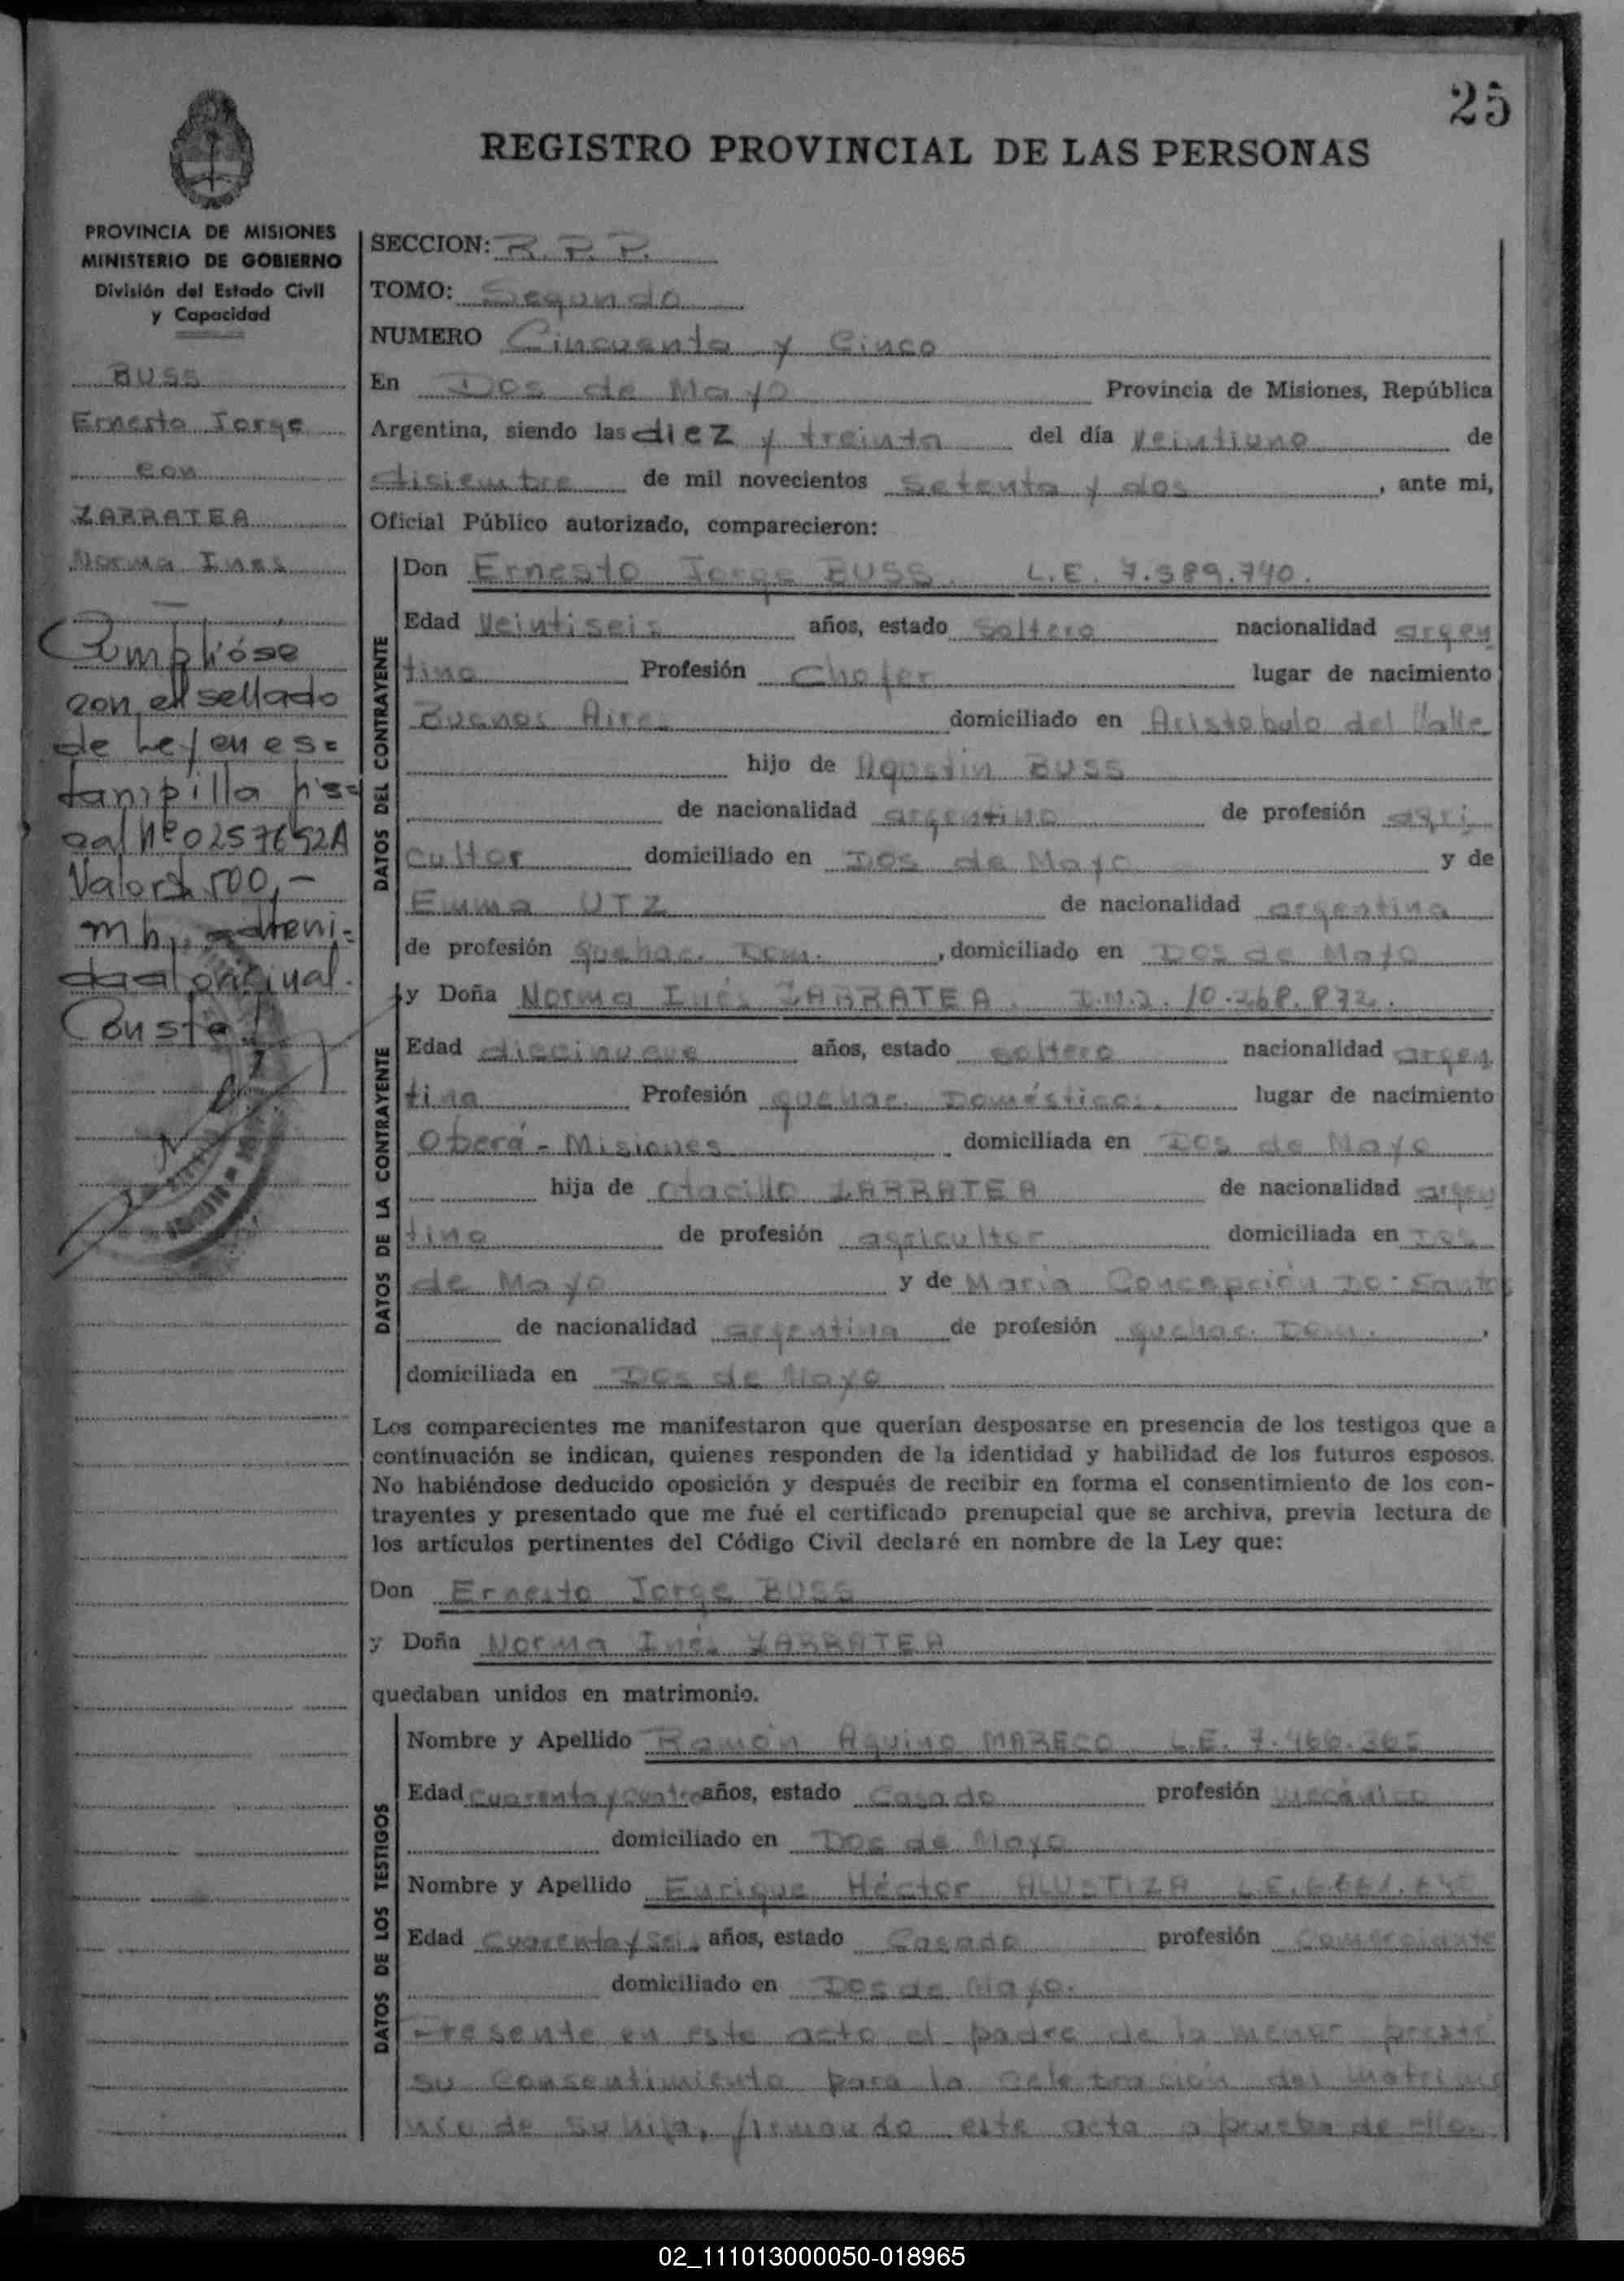 25
REGISTRO PROVINCIAL DE LAS PERSONAS
PROVINCIA DE MISIONES
MINISTERIO DE GOBIERNO
División del Estado Civil
y Capacidad
BUSS
Ernesto Jorge
con
ZARRATEA
Norma Ines
Cumplióse
con el sellado
de Ley en es=
tampilla fis=
cal Nº 0257652A
Valor $ 500,-
m/n, adheri-
da al original.
Conste
SECCION: R. P. P.
TOMO: Segundo
NUMERO Cincuenta y Cinco
En Dos de Mayo Provincia de Misiones, República
Argentina, siendo las diez y treinta del día veintiuno de
disiembre de mil novecientos setenta y dos, ante mi,
Oficial Público autorizado, comparecieron:
DATOS DEL CONTRAYENTE
Don Ernesto Jorge BUSS. L.E. 7.589.740.
Edad Veintiseis años, estado Soltero nacionalidad argen
tina Profesión Chofer lugar de nacimiento
Buenos Aires domiciliado en Aristobulo del Valle
hijo de Agustin BUSS
de nacionalidad argentino de profesión agri
cultor domiciliado en Dos de Mayo y de
Emma UTZ de nacionalidad argentina
de profesión quehac. Dom., domiciliado en Dos de Mayo
DATOS DE LA CONTRAYENTE
y Doña Norma Inés ZARRATEA. D.N.I. 10.268.872.
Edad diecinueve años, estado soltera nacionalidad argen
tina Profesión quehac. Domésticos. lugar de nacimiento
Oberá - Misiones domiciliada en Dos de Mayo
hija de Otacilio ZARRATEA de nacionalidad argen
tino de profesión agricultor domiciliada en Dos
de Mayo y de Maria Concepción Do Santos
de nacionalidad argentina de profesión quehac. Dom.,
domiciliada en Dos de Mayo
Los comparecientes me manifestaron que querían desposarse en presencia de los testigos que a
continuación se indican, quienes responden de la identidad y habilidad de los futuros esposos.
No habiéndose deducido oposición y después de recibir en forma el consentimiento de los con-
trayentes y presentado que me fué el certificado prenupcial que se archiva, previa lectura de
los artículos pertinentes del Código Civil declaré en nombre de la Ley que:
Don Ernesto Jorge BUSS
y Doña Norma Inés ZARRATEA
quedaban unidos en matrimonio.
DATOS DE LOS TESTIGOS
Nombre y Apellido Ramón Aquino MARECO L.E. 7.466.365
Edad Cuarenta y cuatro años, estado Casado profesión mecánico
domiciliado en Dos de Mayo
Nombre y Apellido Enrique Héctor ALUSTIZA L.E.
Edad Cuarenta y Seis años, estado Casado profesión Comerciante
domiciliado en Dos de Mayo.
Presente en este acto el padre de la menor presta
su consentimiento para la celebración del matrimo
nio de su hija, firmando este acta a prueba de ello.
02_111013000050-018965